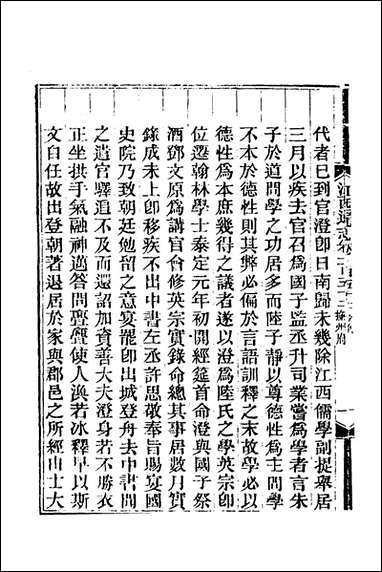 代者已到官澄卽日南歸未幾除江西儒學副提舉居
三月以疾去官召爲國子監丞升司業嘗爲學者言朱
子於道問學之功居多而陸子靜以尊德性爲主問學
不本於德性則其弊必偏於言語訓釋之末故學必以
德性爲本庶幾得之議者遂以澄爲陸氏之學英宗卽
位遷翰林學士泰定元年初開經筵首命澄與國子祭
酒鄧文原爲講官會修英宗實錄命總其事居數月實
錄成未上卽移疾不出中書左丞許思敬奉旨賜宴國
史院乃致朝廷勉留之意宴罷卽出城登舟去中書聞
之遣官驛追不及而還詔加資善大夫澄身若不勝衣
正坐拱手氣融神邁答問亹亹使人渙若冰釋早以斯
文自任故出登朝著退居於家與郡邑之所經由士大
江西通志卷 撫州府